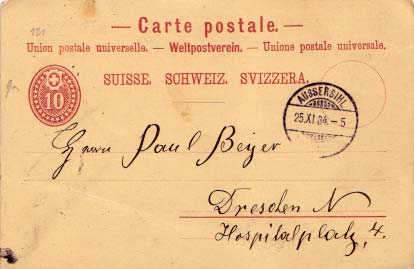 — Carte postale. —
Union postale universelle. — Weltpostverein. — Unione postale universale.
SUISSE. SCHWEIZ. SVIZZERA.
10
AUSSERSIHL
25.XI.84.-5
Herrn Paul Beyer
Dresden N
Hospitalplatz, 4.